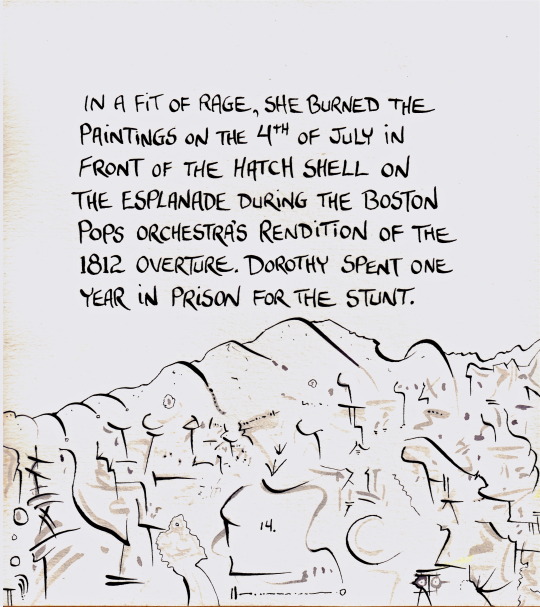 IN A FIT OF RAGE, SHE BURNED THE
PAINTINGS ON THE 4TH OF JULY IN
FRONT OF THE HATCH SHELL ON
THE ESPLANADE DURING THE BOSTON
POPS ORCHESTRA'S RENDITION OF THE
1812 OVERTURE. DOROTHY SPENT ONE
YEAR IN PRISON FOR THE STUNT.
14.